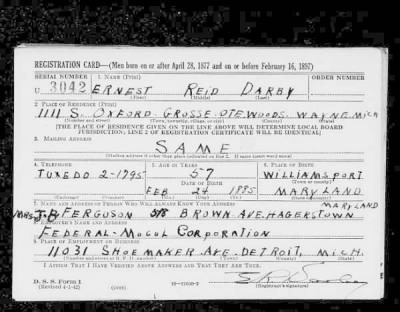 REGISTRATION CARD—(Men born on or after April 28, 1877 and on or before February 16, 1897)
SERIAL NUMBER 1. NAME (Print) ORDER NUMBER
U 3042 ERNEST REID DARBY
(First) (Middle) (Last)
2. PLACE OF RESIDENCE (Print)
1111 S. OXFORD GROSSE PTE WOODS. WAYNE MICH
(Number and street) (Town, township, village, or city) (County) (State)
[THE PLACE OF RESIDENCE GIVEN ON THE LINE ABOVE WILL DETERMINE LOCAL BOARD
JURISDICTION; LINE 2 OF REGISTRATION CERTIFICATE WILL BE IDENTICAL]
3. MAILING ADDRESS
SAME
[Mailing address if other than place indicated on line 2. If same insert word same]
4. TELEPHONE 5. AGE IN YEARS 6. PLACE OF BIRTH
TUXEDO 2-1795 57 WILLIAMSPORT
DATE OF BIRTH (Town or county)
FEB 24 1885 MARYLAND
(Exchange) (Number) (Mo.) (Day) (Yr.) (State or country)
7. NAME AND ADDRESS OF PERSON WHO WILL ALWAYS KNOW YOUR ADDRESS MARYLAND
MRS J.B. FERGUSON 518 BROWN AVE. HAGERSTOWN
8. EMPLOYER'S NAME AND ADDRESS
FEDERAL-MOGUL CORPORATION
9. PLACE OF EMPLOYMENT OR BUSINESS
11031 SHOEMAKER AVE. DETROIT, MICH.
(Number and street or R. F. D. number) (Town) (County) (State)
I AFFIRM THAT I HAVE VERIFIED ABOVE ANSWERS AND THAT THEY ARE TRUE.
D. S. S. Form 1
(Revised 4-1-42) (over) (Registrant's signature)